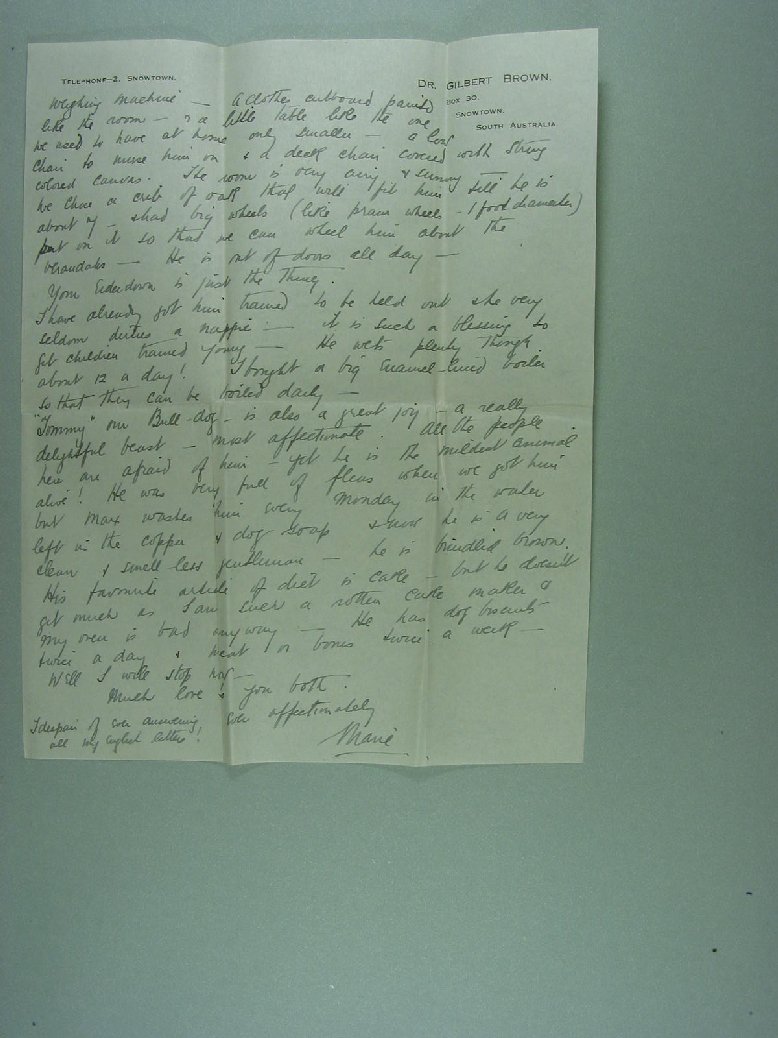 TELEPHONE-2, SNOWTOWN.
DR. GILBERT BROWN.
BOX 30.
SNOWTOWN.
SOUTH AUSTRALIA
weighing machine — A clothes cutboard painted
like the room — & a little table like the one
we used to have at home only smaller — a low
chair to nurse him on & a deck chair covered with strong
colored canvas. The room is very airy & sunny —
We have a crib of oak that will fit him till he is
about & had big wheels (like pram wheels - 1 food diameter)
put on it so that we can wheel him about the
verandahs — He is out of doors all day —
Your Eiderdown is just the thing.
I have already got him trained to be held out & he very
seldom dirties a nappie — it is such a blessing to
get children trained young — He wets plenty though
about 12 a day! I bought a big Enamel-lined boiler
so that they can be boiled daily —
"Tommy" our Bull-dog - is also a great joy — a really
delightful beast — most affectionate. All the people
here are afraid of him — yet he is the mildest animal
alive! He was very full of fleas when we got him
but Max washes him every Monday in the water
left in the copper & dog soap & now he is a very
clean & smell-less gentleman — he is brindled brown.
His favourite article of diet is cake — but he doesn't
get much as I am such a rotten cake maker &
my oven is bad anyway — He has dog biscuits
twice a day & meat or bones twice a week —
Well I will stop now —
Much love to you both.
ever affectionately
Marie
I despair of ever answering
all my English letters!